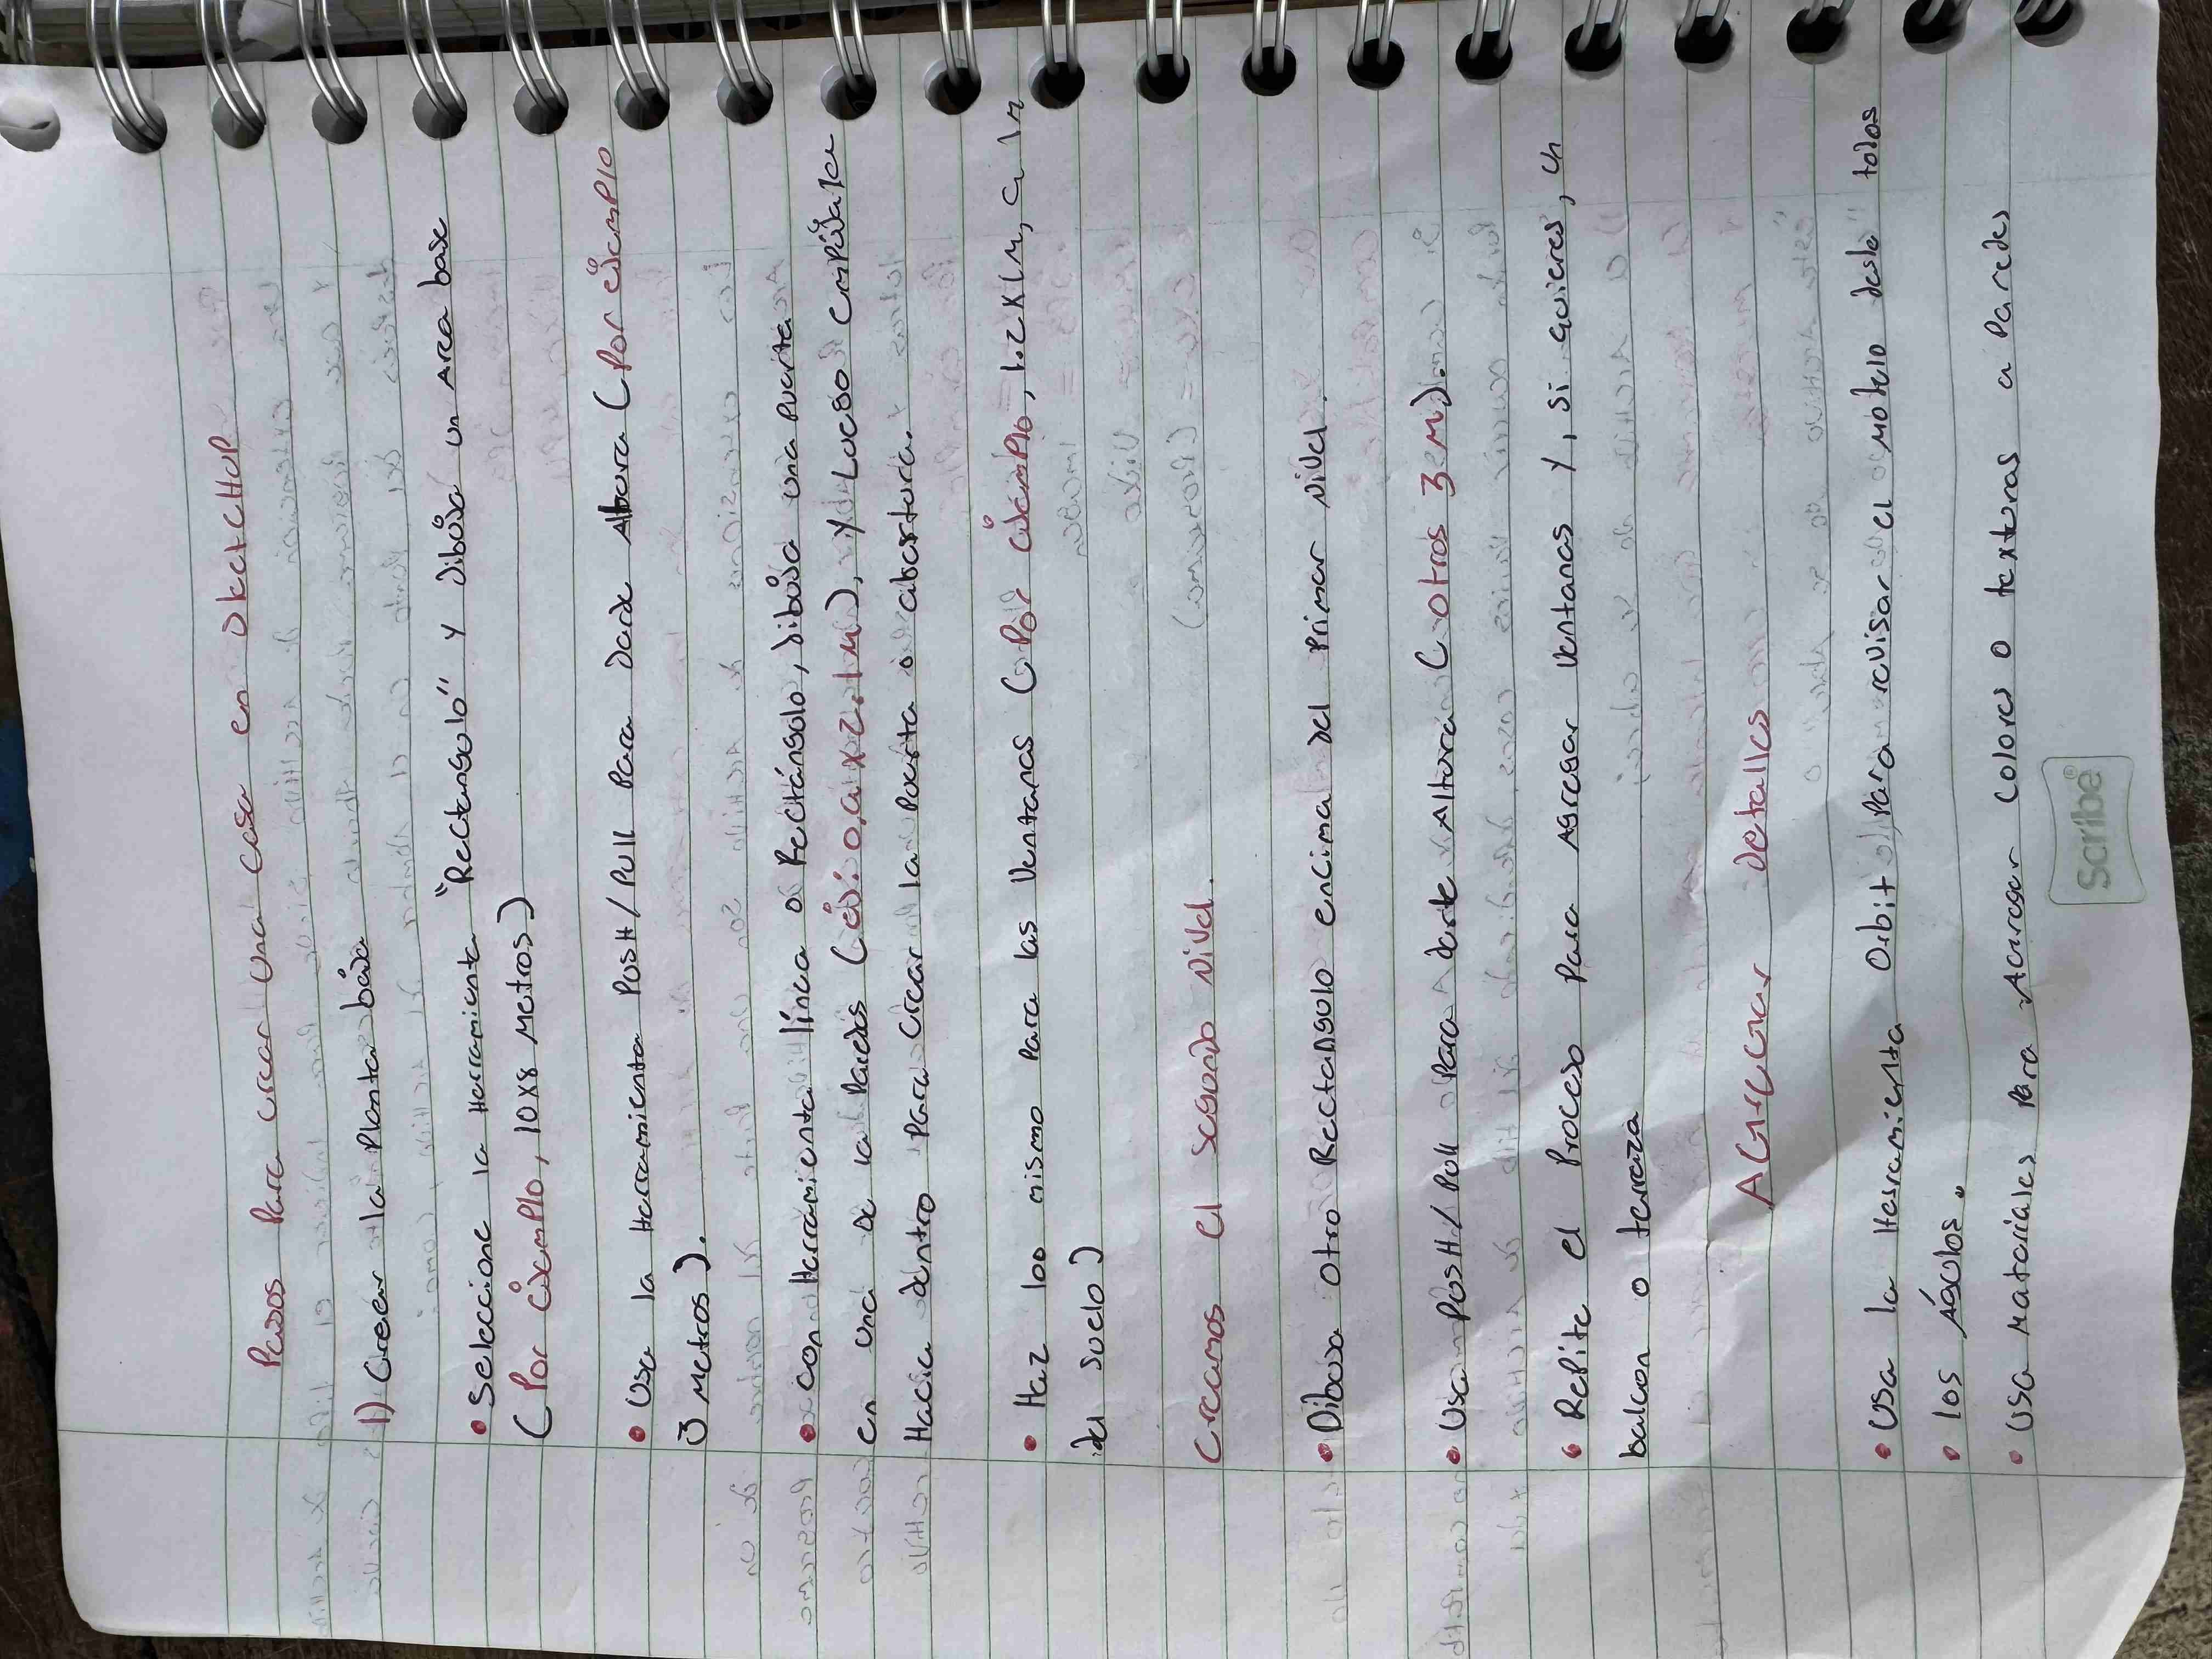 Pasos Para crear una casa en SketCHUP
1) Creear la Planta baja
• Seleccione la Herramienta "Rectangulo" y dibuja un Area base
(Por ejemplo, 10x8 Metros)
• Usa la Herramienta PusH/Pull Para Darle Altura (Por ejemplo
3 Metros).
• con Herramienta línea o Rectángulo, dibuja una puerta
en una de la Paredes (ej: 0,9 x 2.1 M), y Luego empújale
Hacia dentro Para Crear la Puerta o abertuda.
• Haz loo mismo Para las Ventanas (Por ejemplo, 1.2 x 1 M, a 1 m
del suelo)
Creamos el segundo nivel.
• Dibuja otro Rectangulo encima del Primer nivel.
• Usa PusH/Pull Para darle Altura (otros 3 M).
• Repite el Proceso Para Agregar Ventanas y, si quieres, un
balcon o terraza
AGREGAR detalles
• Usa la Herramienta Orbit Para revisar el Modelo desde todos
• los Águlos.
• Usa Materiales Para Agregar colores o texturas a Paredes
Scribe®